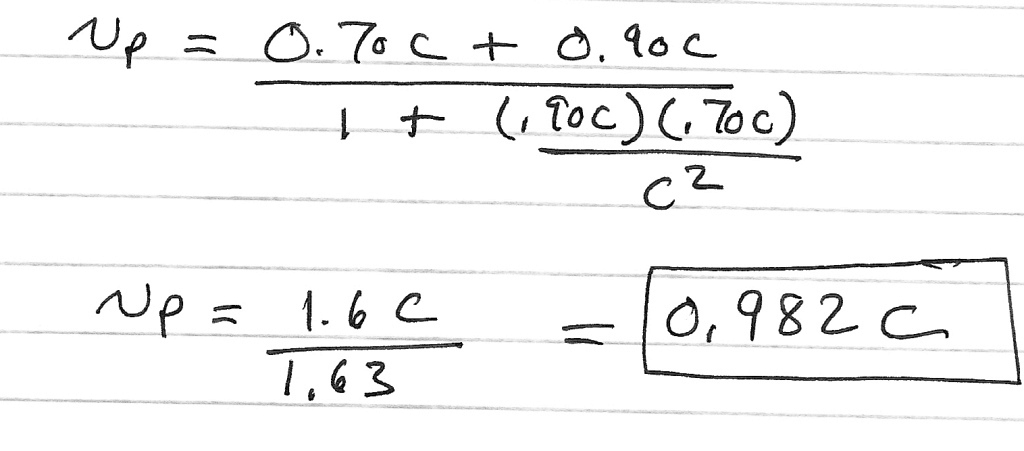 Vp = 0.70c + 0.90c
1 + (.90c)(.70c)
c²
Vp = 1.6c = 0.982c
1.63